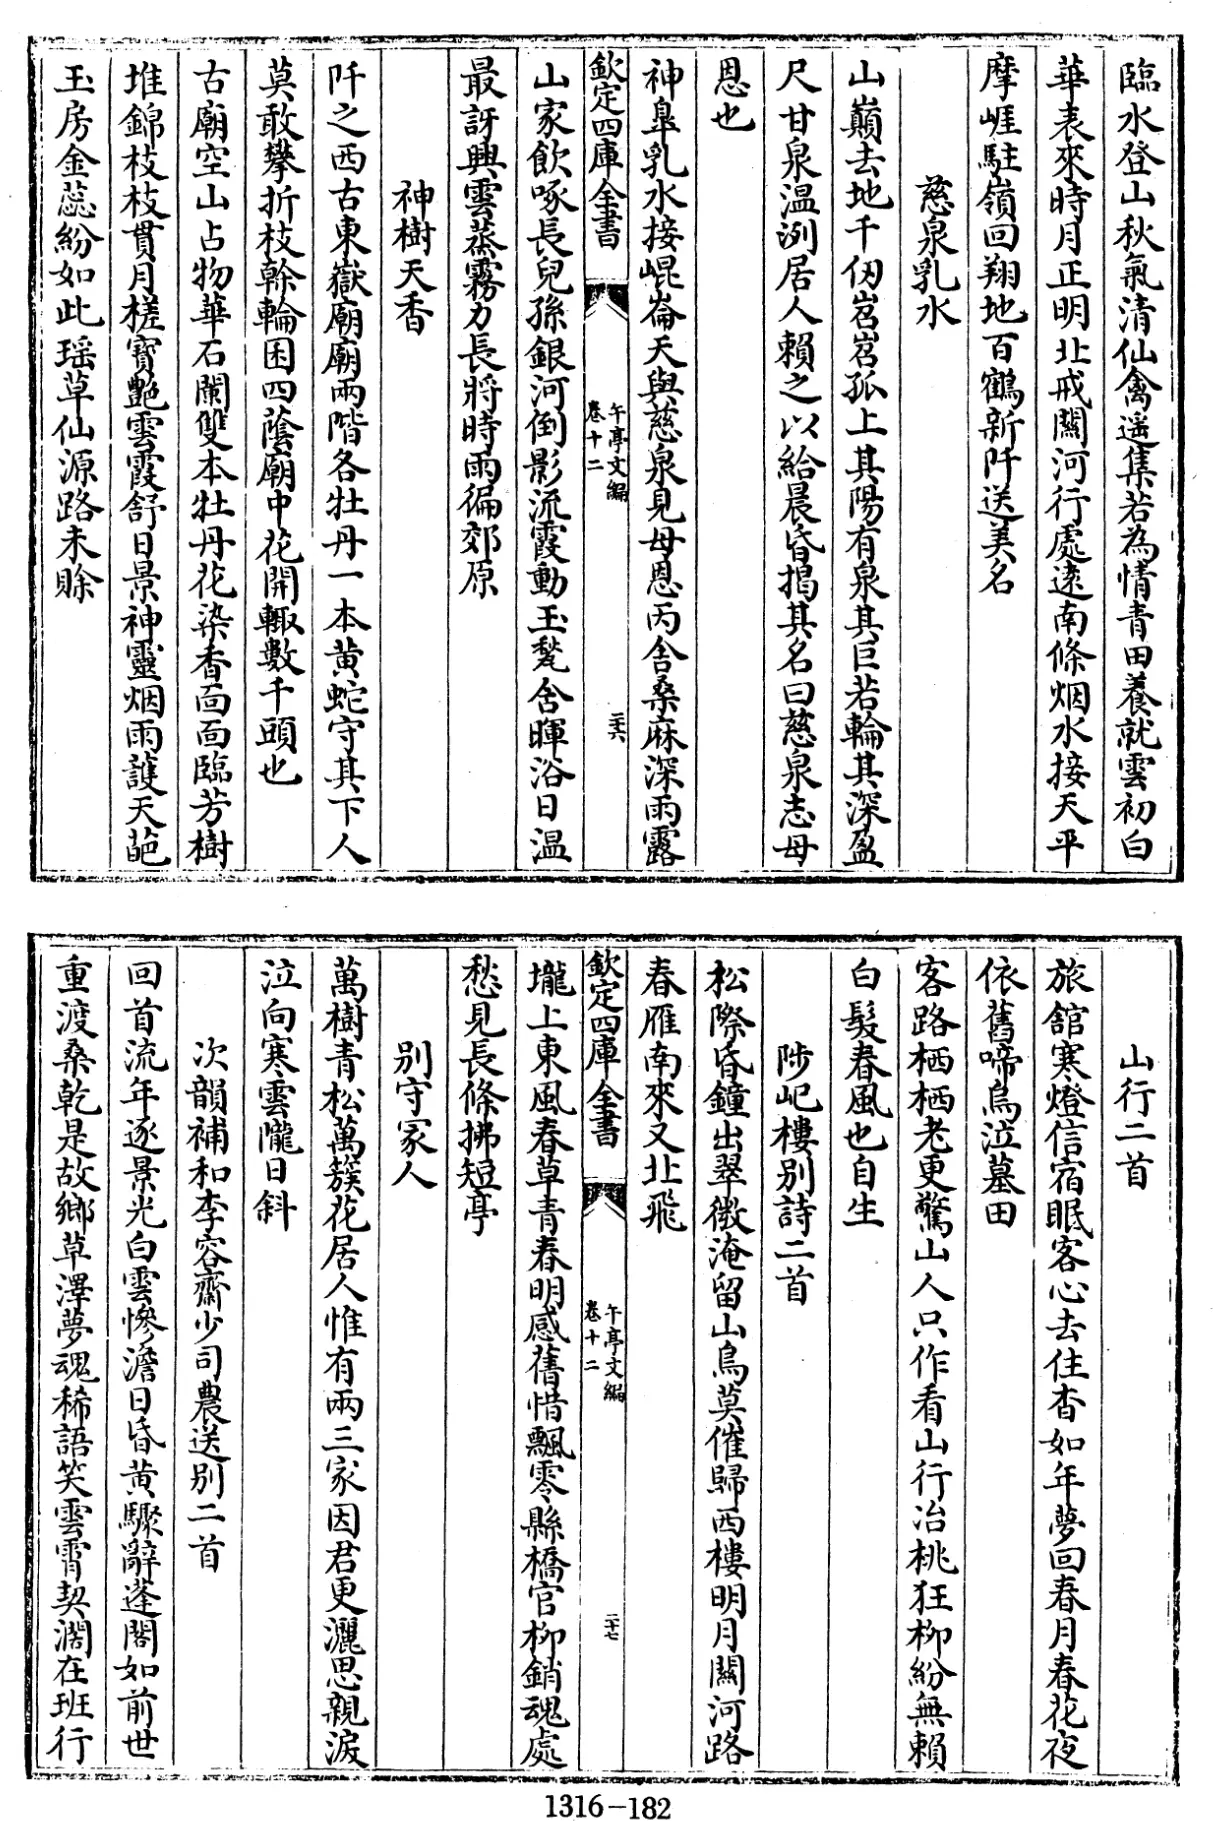 臨水登山秋氣清仙禽遥集若為情青田養就雲初白
華表來時月正明北戒關河行處逺南條烟水接天平
摩崕駐嶺回翔地百鶴新阡送美名
慈泉乳水
山巔去地千仞岧岧孤上其陽有泉其巨若輪其深盈
尺甘泉温洌居人賴之以給晨昏揭其名曰慈泉志母
恩也
神臯乳水接崐崙天與慈泉見母恩丙舍桑麻深雨露
欽定四庫全書
午亭文編
卷十二
三六
山家飲啄長兒孫銀河倒影流霞動玉甃含暉浴日温
最訝興雲蒸霧力長將時雨徧郊原
神樹天香
阡之西古東嶽廟廟兩階各牡丹一本黄蛇守其下人
莫敢攀折枝幹輪囷四蔭廟中花開輙數千頭也
古廟空山占物華石闌雙本牡丹花染香面面臨芳樹
堆錦枝枝貫月槎寳艶雲霞舒日景神靈烟雨護天葩
玉房金蕊紛如此瑶草仙源路未賖
山行二首
旅舘寒燈信宿眠客心去住杳如年夢回春月春花夜
依舊啼烏泣墓田
客路栖栖老更驚山人只作看山行冶桃狂柳紛無賴
白髮春風也自生
陟屺樓别詩二首
松際昏鐘出翠微淹留山烏莫催歸西樓明月關河路
春雁南來又北飛
欽定四庫全書
午亭文編
卷十二
二十七
壠上東風春草青春明感舊惜飄零縣橋官柳銷魂處
愁見長條拂短亭
别守冡人
萬樹青松萬簇花居人惟有兩三家因君更灑思親淚
泣向寒雲隴日斜
次韻補和李容齋少司農送别二首
回首流年逐景光白雲慘澹日昏黄驟辭蓬閣如前世
重渡桑乾是故鄉草澤夢魂稀語笑雲霄契濶在班行
1316-182